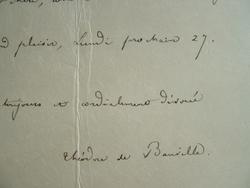 plaisir, Lundi prochain 27.
toujours et cordialement dévoué
Théodore de Banville.